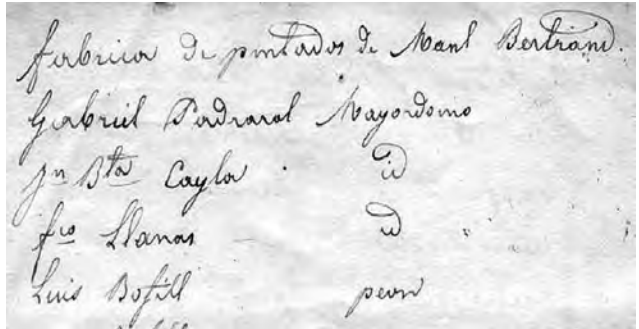 Fabrica de pintados de Manl Bertrand.
Gabriel Padrarol Mayordomo
Jn Bta Cayla id
fco Llanas id
Luis Bofill peon